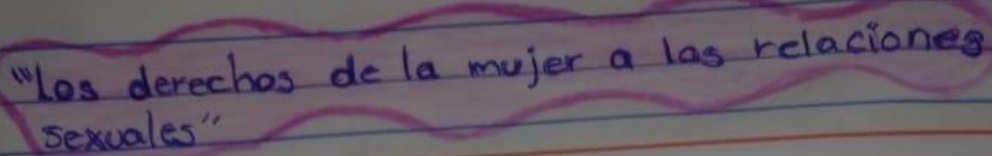 "Los derechos de la mujer a las relaciones
sexuales"